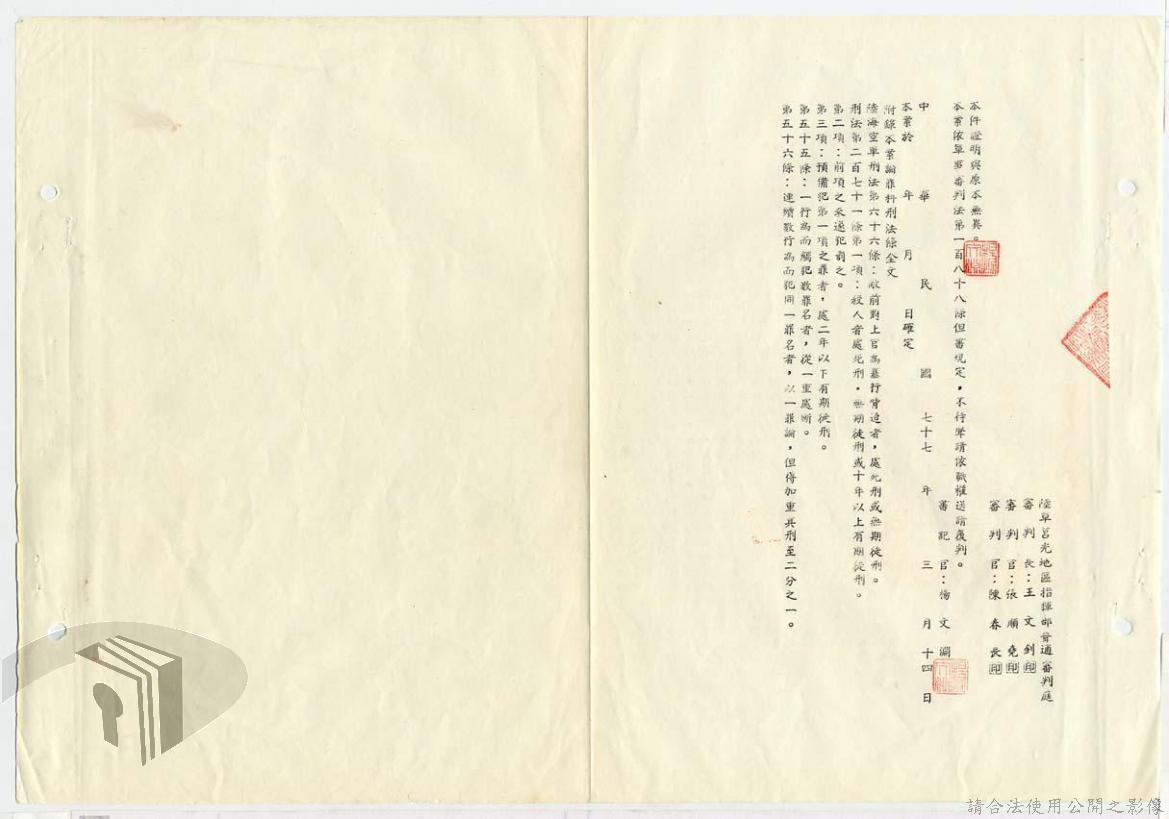 陸軍莒光地區指揮部普通審判庭
審判長：王文劍印
審判官：張順堯印
審判官：陳春長印
本件證明與原本無異。
本案依軍事審判法第一百八十八條但書規定，不待聲請依職權送請覆判。
書記官：楊文瀾
中華民國七十七年三月十四日
本案於　年　月　日確定
附錄本案論罪科刑法條全文
陸海空軍刑法第六十六條：敵前對上官為暴行脅迫者，處死刑或無期徒刑。
刑法第二百七十一條第一項：殺人者處死刑，無期徒刑或十年以上有期徒刑。
第二項：前項之未遂犯罰之。
第三項：預備犯第一項之罪者，處二年以下有期徒刑。
第五十五條：一行為而觸犯數罪名者，從一重處斷。
第五十六條：連續數行為而犯同一罪名者，以一罪論，但得加重其刑至二分之一。
請合法使用公開之影像